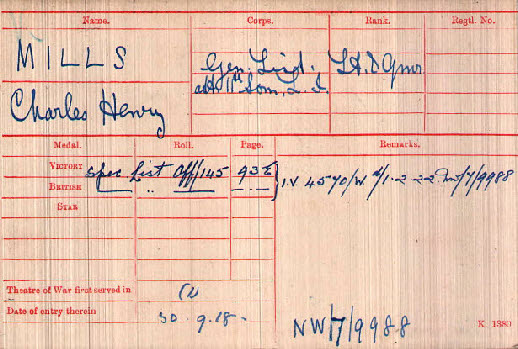 Name. Corps. Rank. Regtl. No.
MILLS Gen. List. Lt. & Qmr
Charles Henry att 1st Som. L. I.
Medal. Roll. Page. Remarks.
VICTORY Spec List Off/145 93E
BRITISH " - - - IV 4570/W NW/7/9988
STAR
Theatre of War first served in
Date of entry therein 30.9.18.
NW/7/9988
K 1380